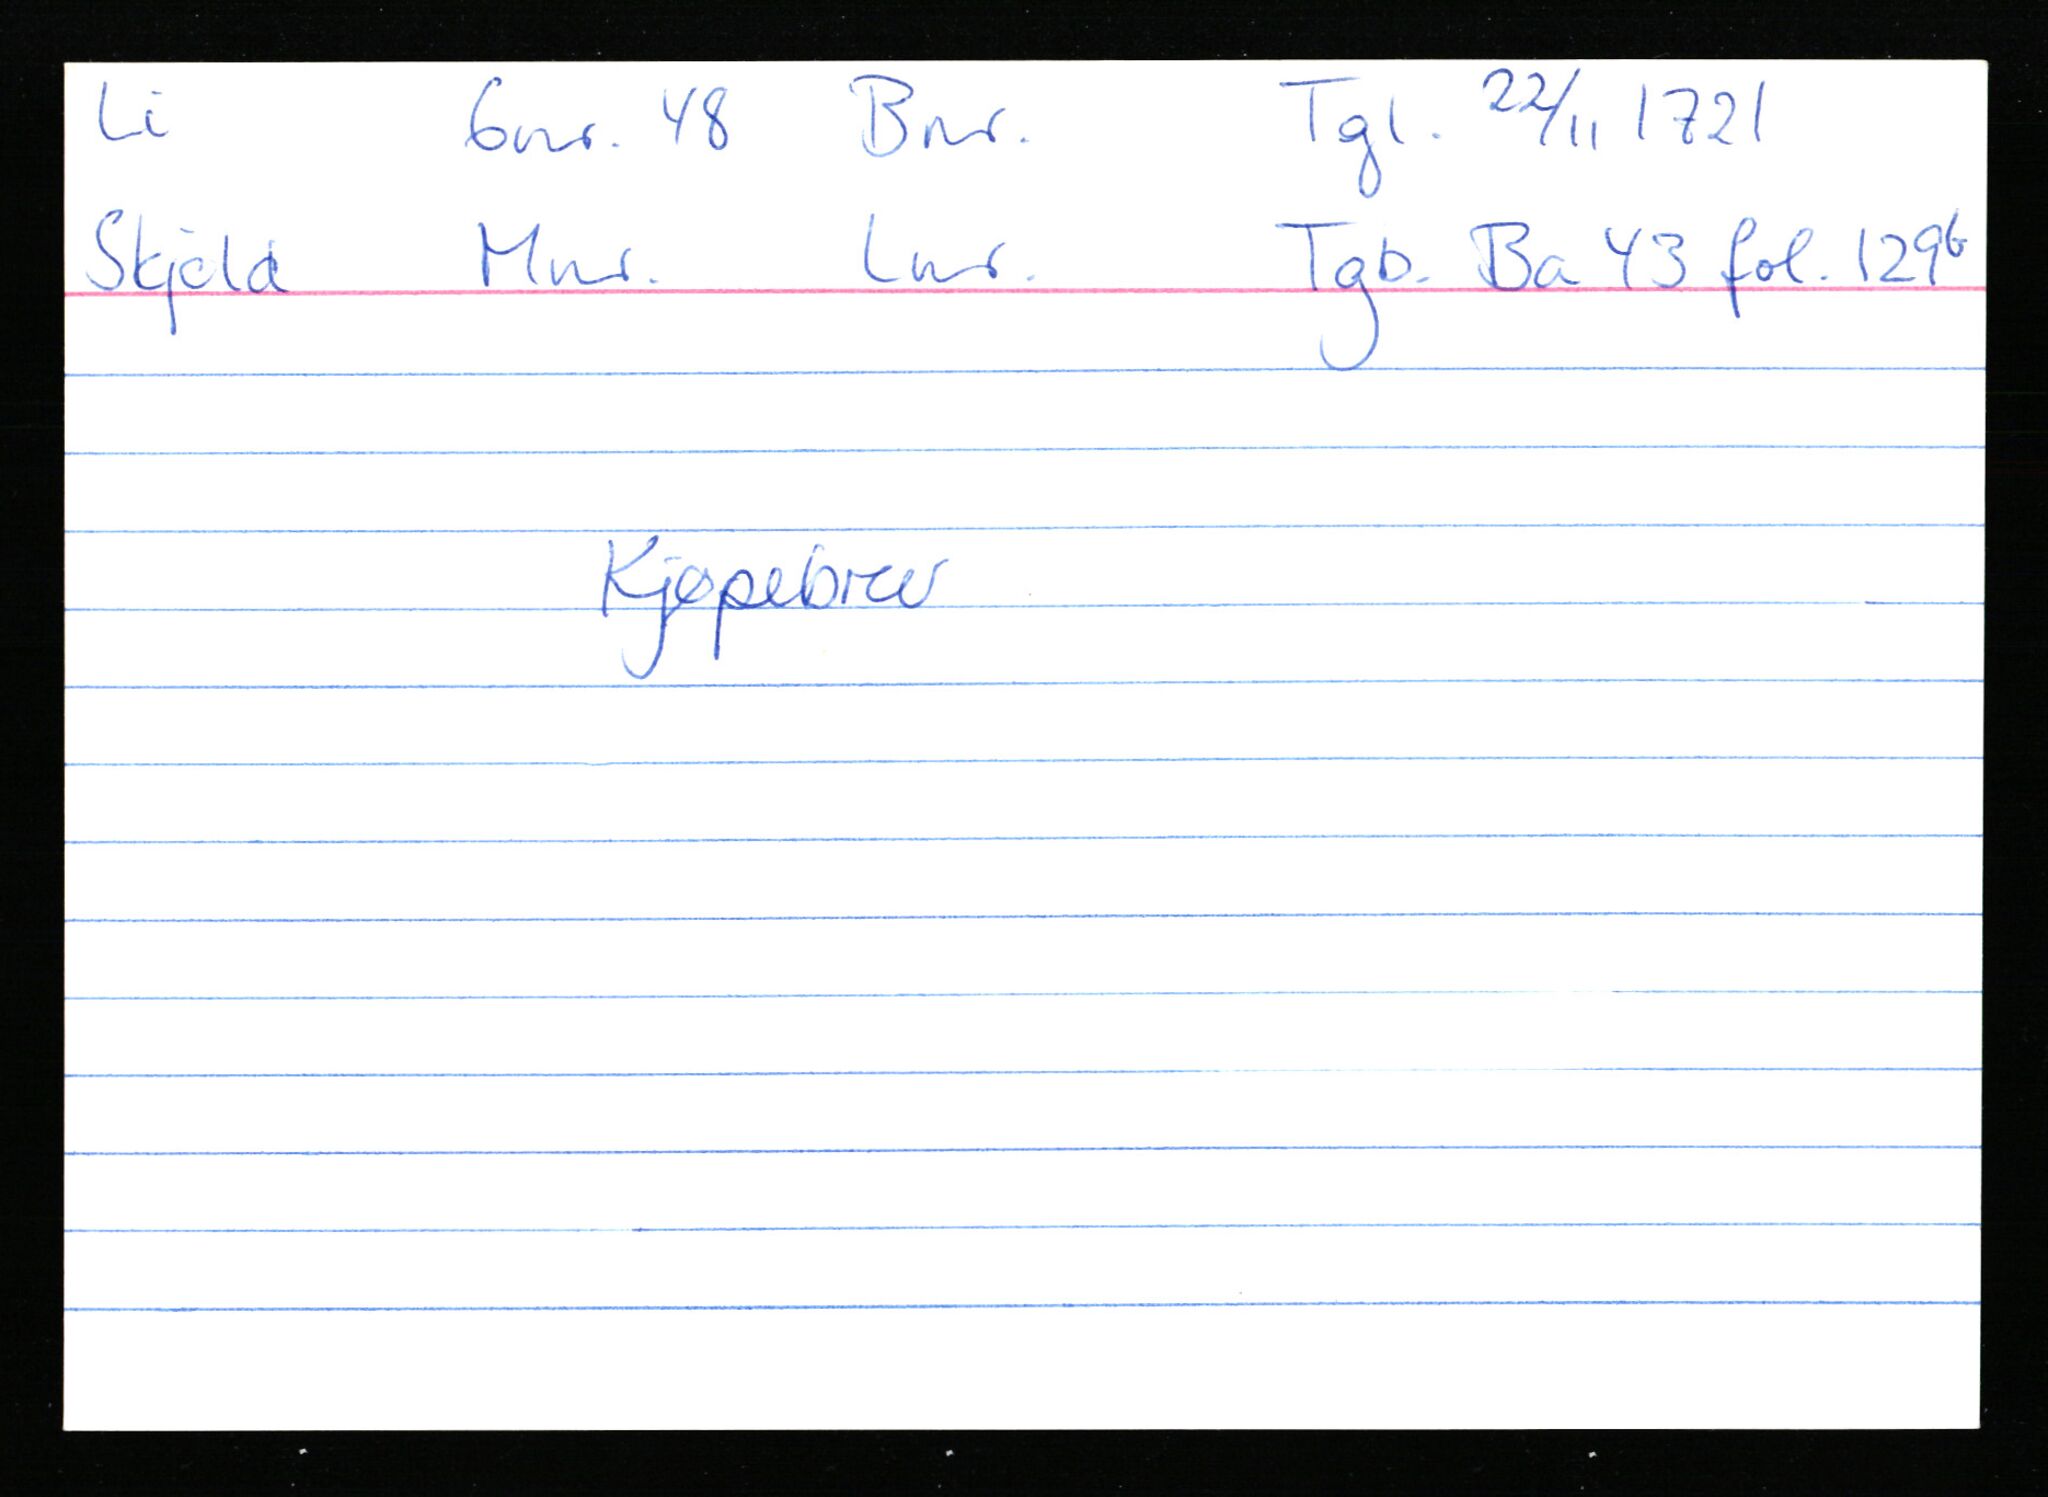 Li Gnr. 48 Bnr. Tgl. 22/11 1721
Skjold Mnr. Lnr. Tgb. Ba 43 fol. 129b
Kjøpebrev